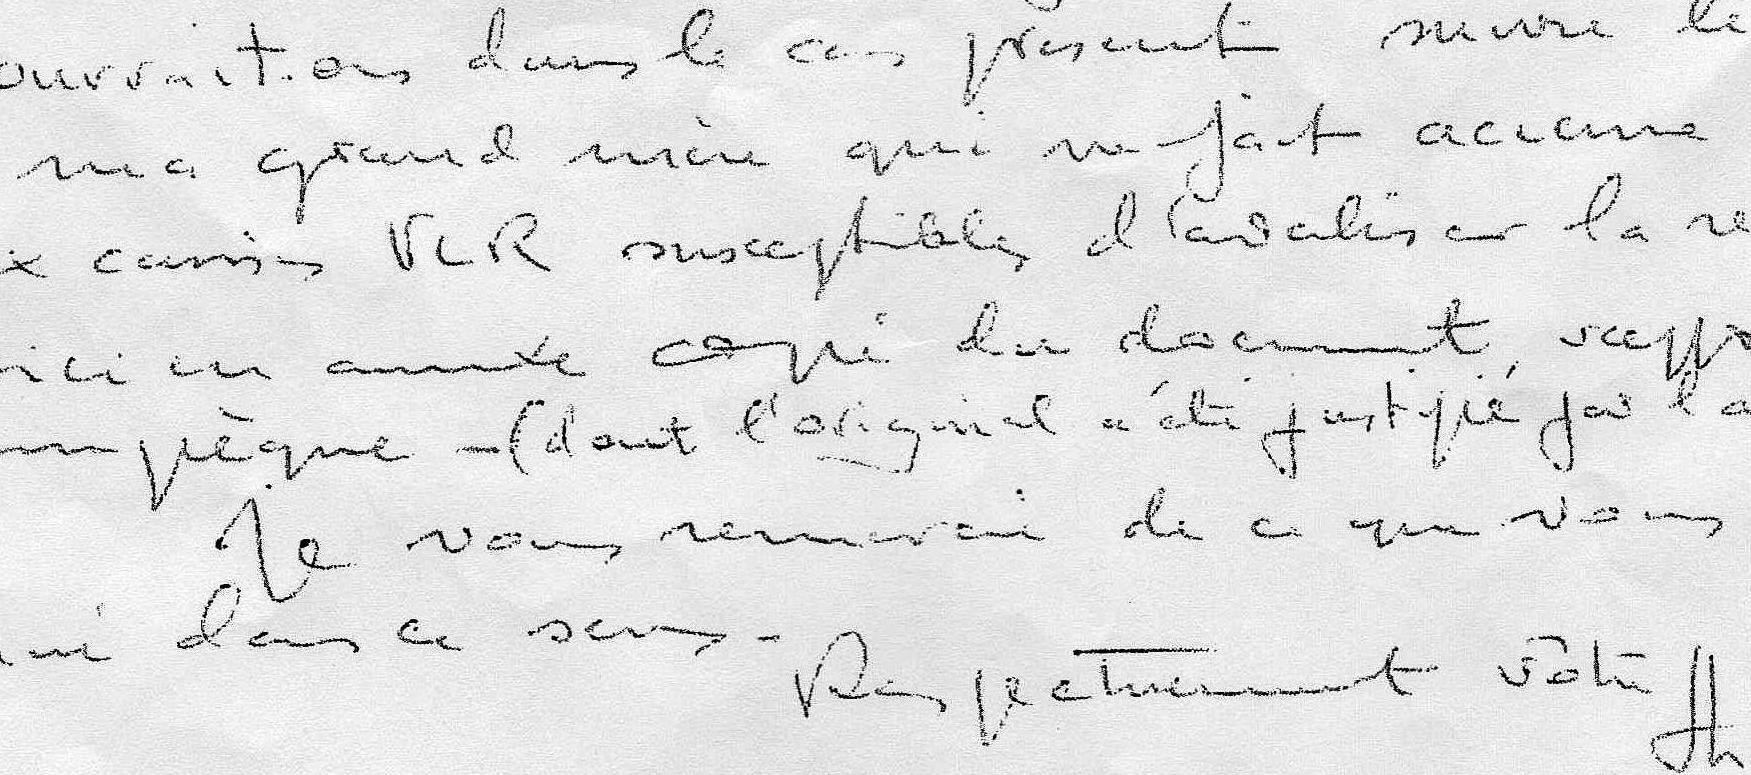 ourrait-on dans le cas présent suivre le
ma grand mère qui ne fait aucune
x caisses VLR susceptibles d'avaliser la re
ici en annexe copie du document,
(dont l'original a été justifié par la
Je vous remercie de ce que vous
dans ce sens.
Respectueusement vôtre